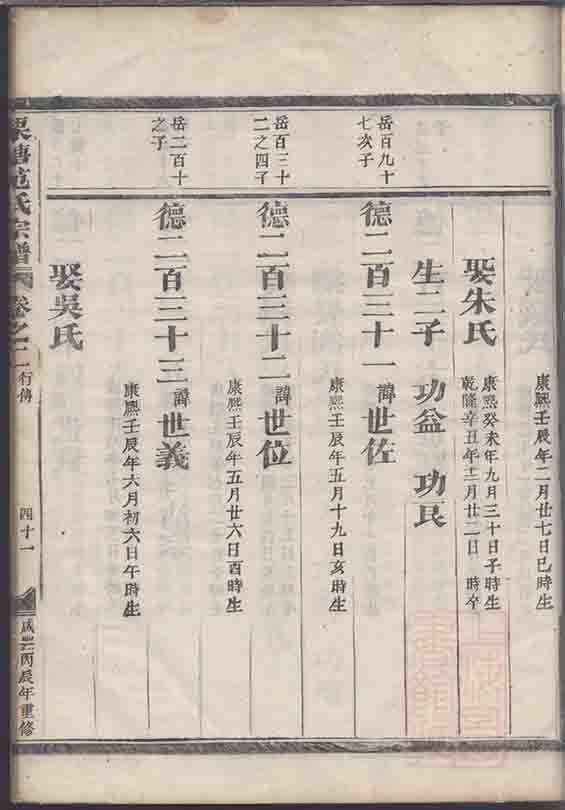 康熙壬辰年二月廿七日巳時生
娶朱氏
康熙癸未年九月三十日子時生
乾隆辛丑年十二月廿二日 時卒
生二子 功益 功民
岳百九十
七次子
德二百三十一諱世佐
康熙壬辰年五月十九日亥時生
岳百三十
二之四子
德二百三十二諱世位
康熙壬辰年五月廿六日酉時生
岳二百十
之子
德二百三十三諱世義
康熙壬辰年六月初六日午時生
娶吳氏
栗塘范氏宗譜 卷之二 行傳 四十一 咸豐丙辰年重修